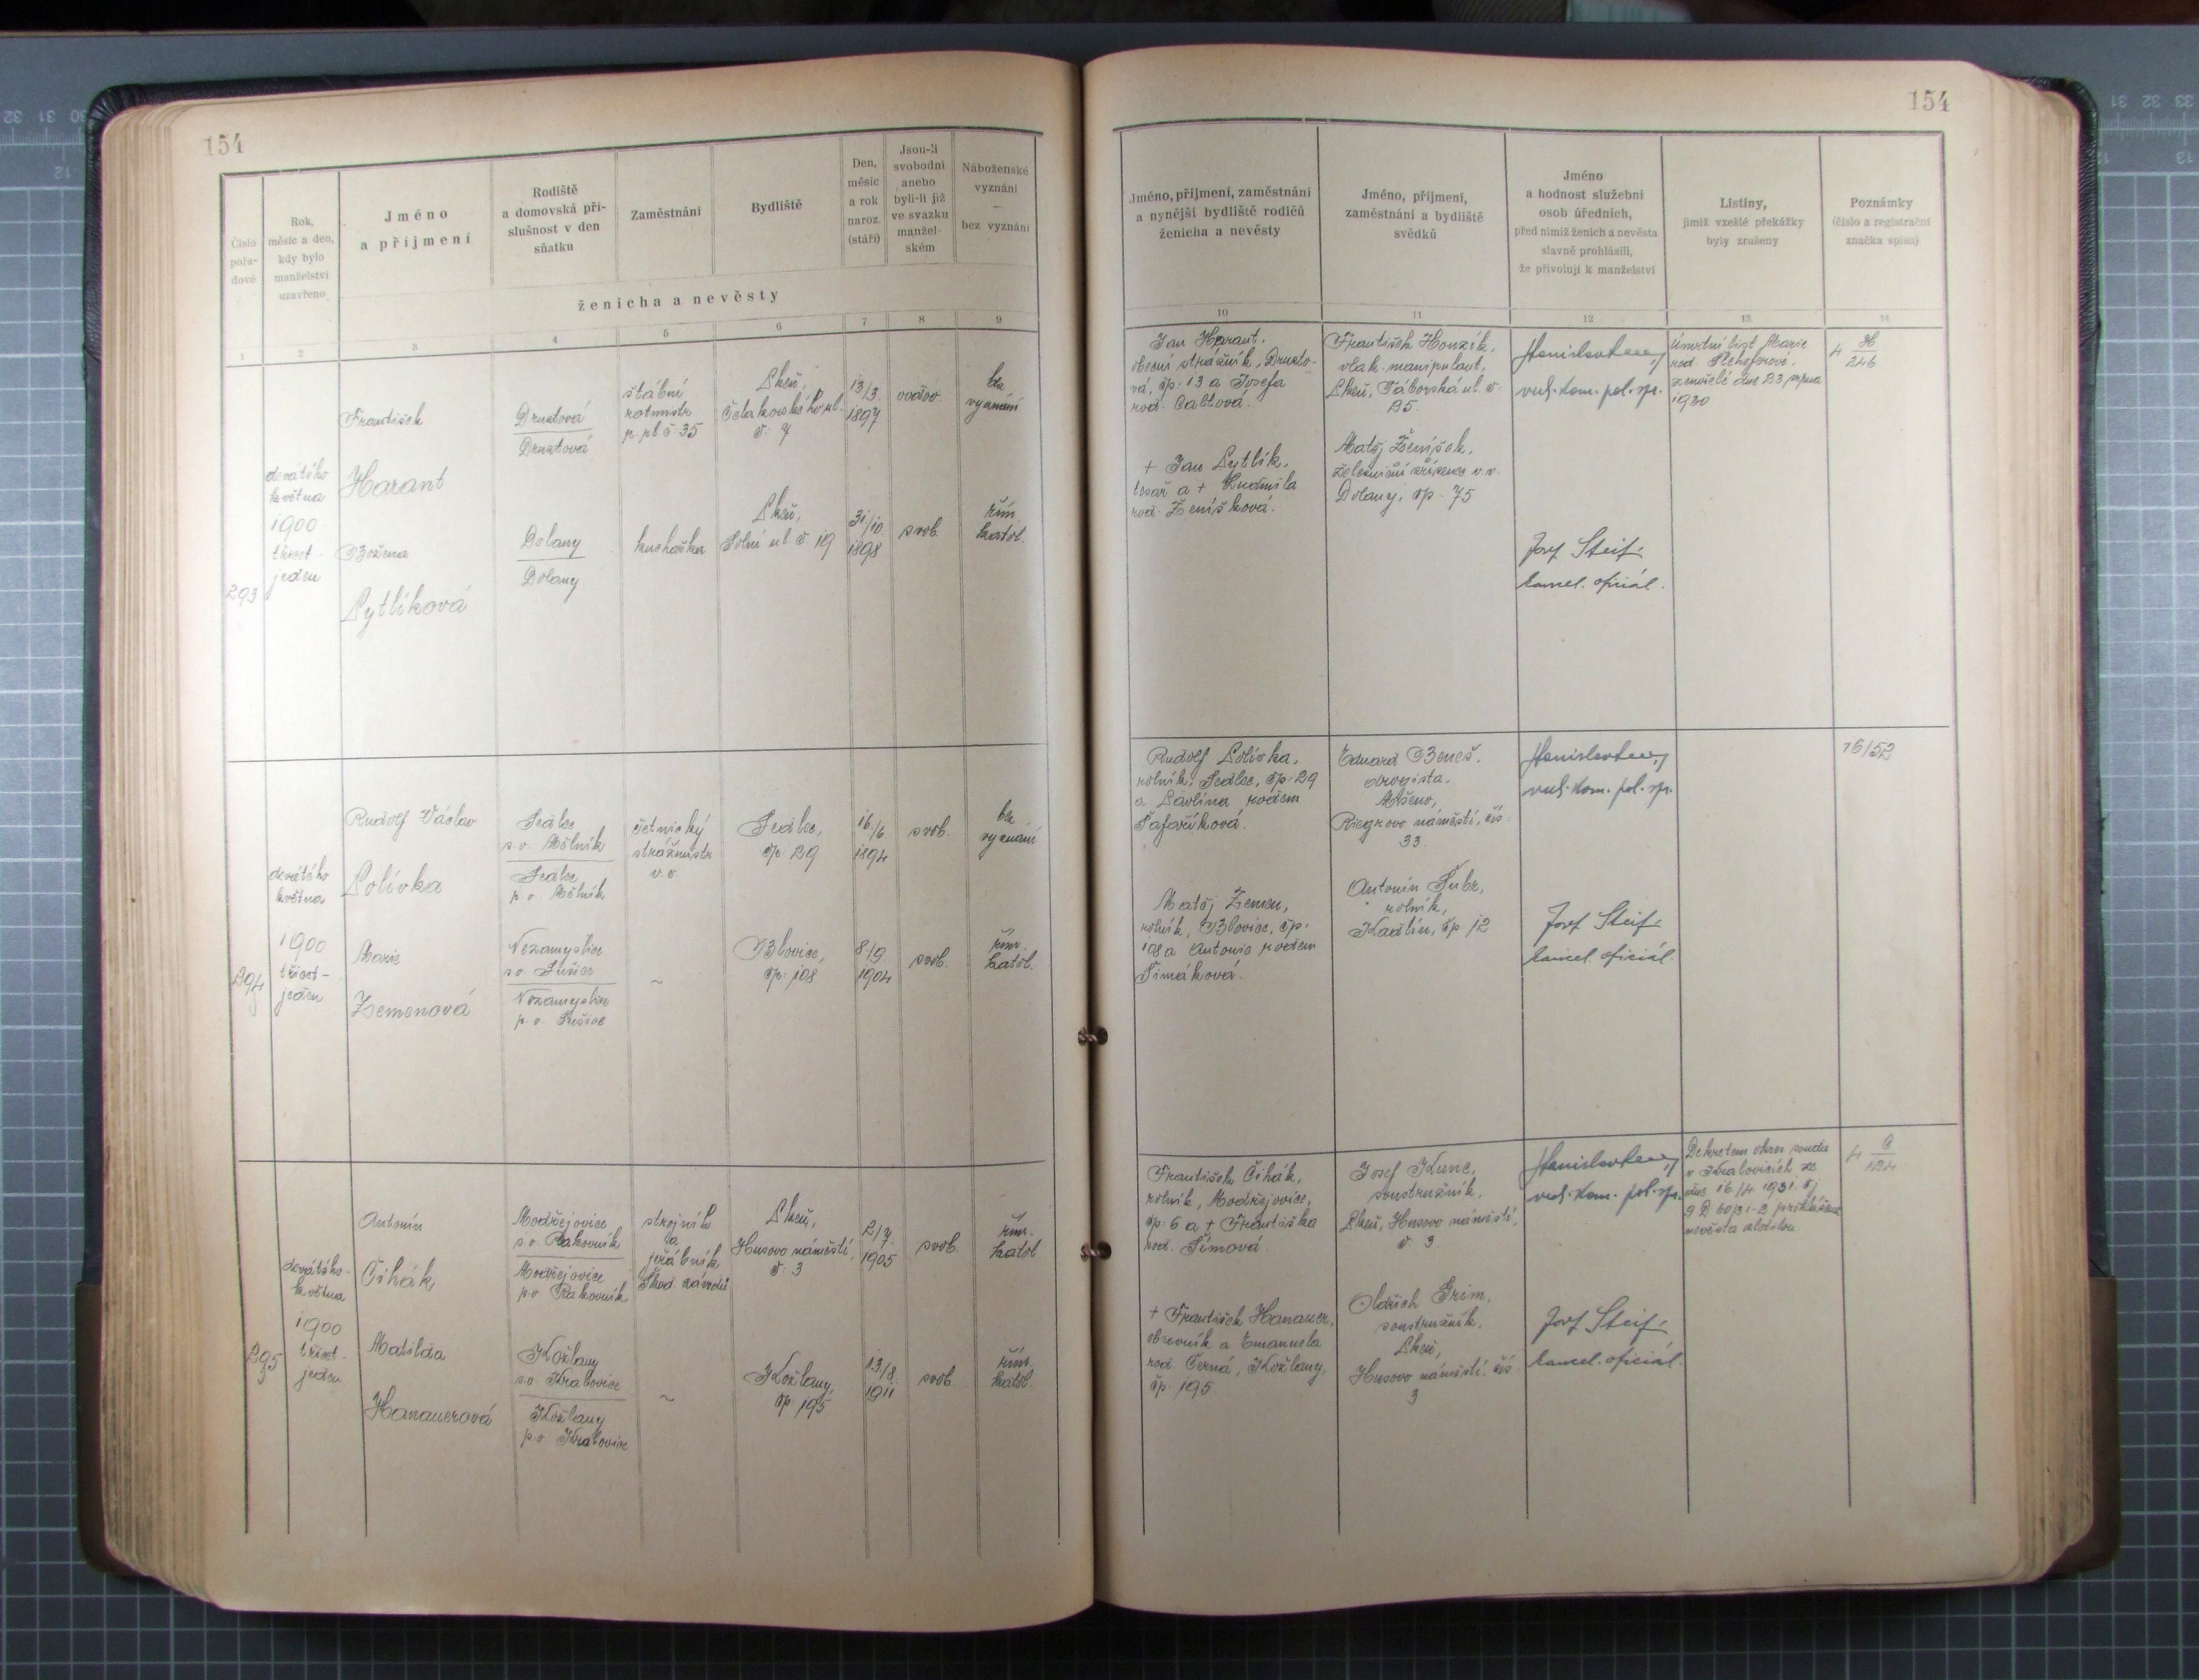 154
Číslo
pořa-
dové
Rok,
měsíc a den,
kdy bylo
manželství
uzavřeno
Jméno
a příjmení
Rodiště
a domovská pří-
slušnost v den
sňatku
Zaměstnání
Bydliště
Den,
měsíc
a rok
naroz.
(stáří)
Jsou-li
svobodni
anebo
byli-li již
ve svazku
manžel-
ském
Náboženské
vyznání
—
bez vyznání
ženicha a nevěsty
1 2 3 4 5 6 7 8 9
293
devátého
května
1900
třicet-
jeden
František
Harant
Božena
Pytlíková
Druztová
Druztová
Dolany
Dolany
štábní
rotmistr
p. pl. č. 35
kuchařka
Plzeň,
Čelakovského ul.
č. 7
Plzeň,
Solní ul. č. 19
13/3.
1897
31/10
1898
ovdov.
svob.
bez
vyznání
řím.
katol.
294
devátého
května
1900
třicet-
jeden
Rudolf Václav
Polívka
Marie
Zemenová
Sedlec
s.o. Mělník
Sedlec
p.o. Mělník
Nezamyslice
s.o. Sušice
Nezamyslice
p.o. Sušice
četnický
strážmistr
v.v.
~
Sedlec,
čp. 29
Blovice,
čp. 108
16./6.
1894
8/9.
1904
svob.
svob.
bez
vyznání
řím.
katol.
295
devátého
května
1900
třicet-
jeden
Antonín
Čihák
Matilda
Hanauerová
Modřejovice
s.o. Rakovník
Modřejovice
p.o. Rakovník
Kožlany
s.o. Kralovice
Kožlany
p.o. Kralovice
strojník
a
jeřábník
Škod. závodů
~
Plzeň,
Husovo náměstí,
č. 3
Kožlany,
čp. 195
2/7.
1905
13/8.
1911
svob.
svob.
řím.
katol
řím.
katol.
154
Jméno, příjmení, zaměstnání
a nynější bydliště rodičů
ženicha a nevěsty
Jméno, příjmení,
zaměstnání a bydliště
svědků
Jméno
a hodnost služební
osob úředních,
před nimiž ženich a nevěsta
slavně prohlásili,
že přivolují k manželství
Listiny,
jimiž vzešlé překážky
byly zrušeny
Poznámky
(číslo a registrační
značka spisu)
10 11 12 13 14
Jan Harant,
obecní strážník, Druzto-
vá, čp. 13 a Josefa
rod. Caltová.
+ Jan Pytlík,
tesař a + Ludmila
rod. Ženíšková.
František Honzík,
vlak. manipulant,
Plzeň, Táborská ul. č.
25.
Matěj Ženíšek,
železniční zřízenec v.v.
Dolany, čp. 75
vrch. kom. pol. spr.
Josef Steif
kancel. oficiál.
Úmrtní list Marie
rod.
zemřelé dne 23. srpna
1930
4 H
246
Rudolf Polívka,
rolník, Sedlec, čp. 29
a Pavlína rodem
Šafaříková.
Matěj Zemen,
rolník, Blovice, čp.
108 a Antonie rodem
Šimáková.
Eduard Beneš,
drogista,
Mšeno,
Riegrovo náměstí, čís.
33.
Antonín Šubr,
rolník,
Kadlín, čp 12
vrch. kom. pol. spr.
Josef Steif
kancel. oficiál.
16/52
František Čihák,
rolník, Modřejovice,
čp. 6 a + Františka
rod. Šímová.
+ František Hanauer,
obuvník a Emanuela
rod. Černá, Kožlany,
čp. 195
Josef Kunc,
soustružník,
Plzeň, Husovo náměstí,
č. 3.
Oldřich Grim,
soustružník,
Plzeň,
Husovo náměstí, čís.
3
vrch. kom. pol. spr.
Josef Steif
kancel. oficiál.
Dekretem okres. soudu
v Kralovicích ze
dne 16./4. 1931. čj
9 D 60/31-2 prohlášena
nevěsta zletilou.
4 C
124